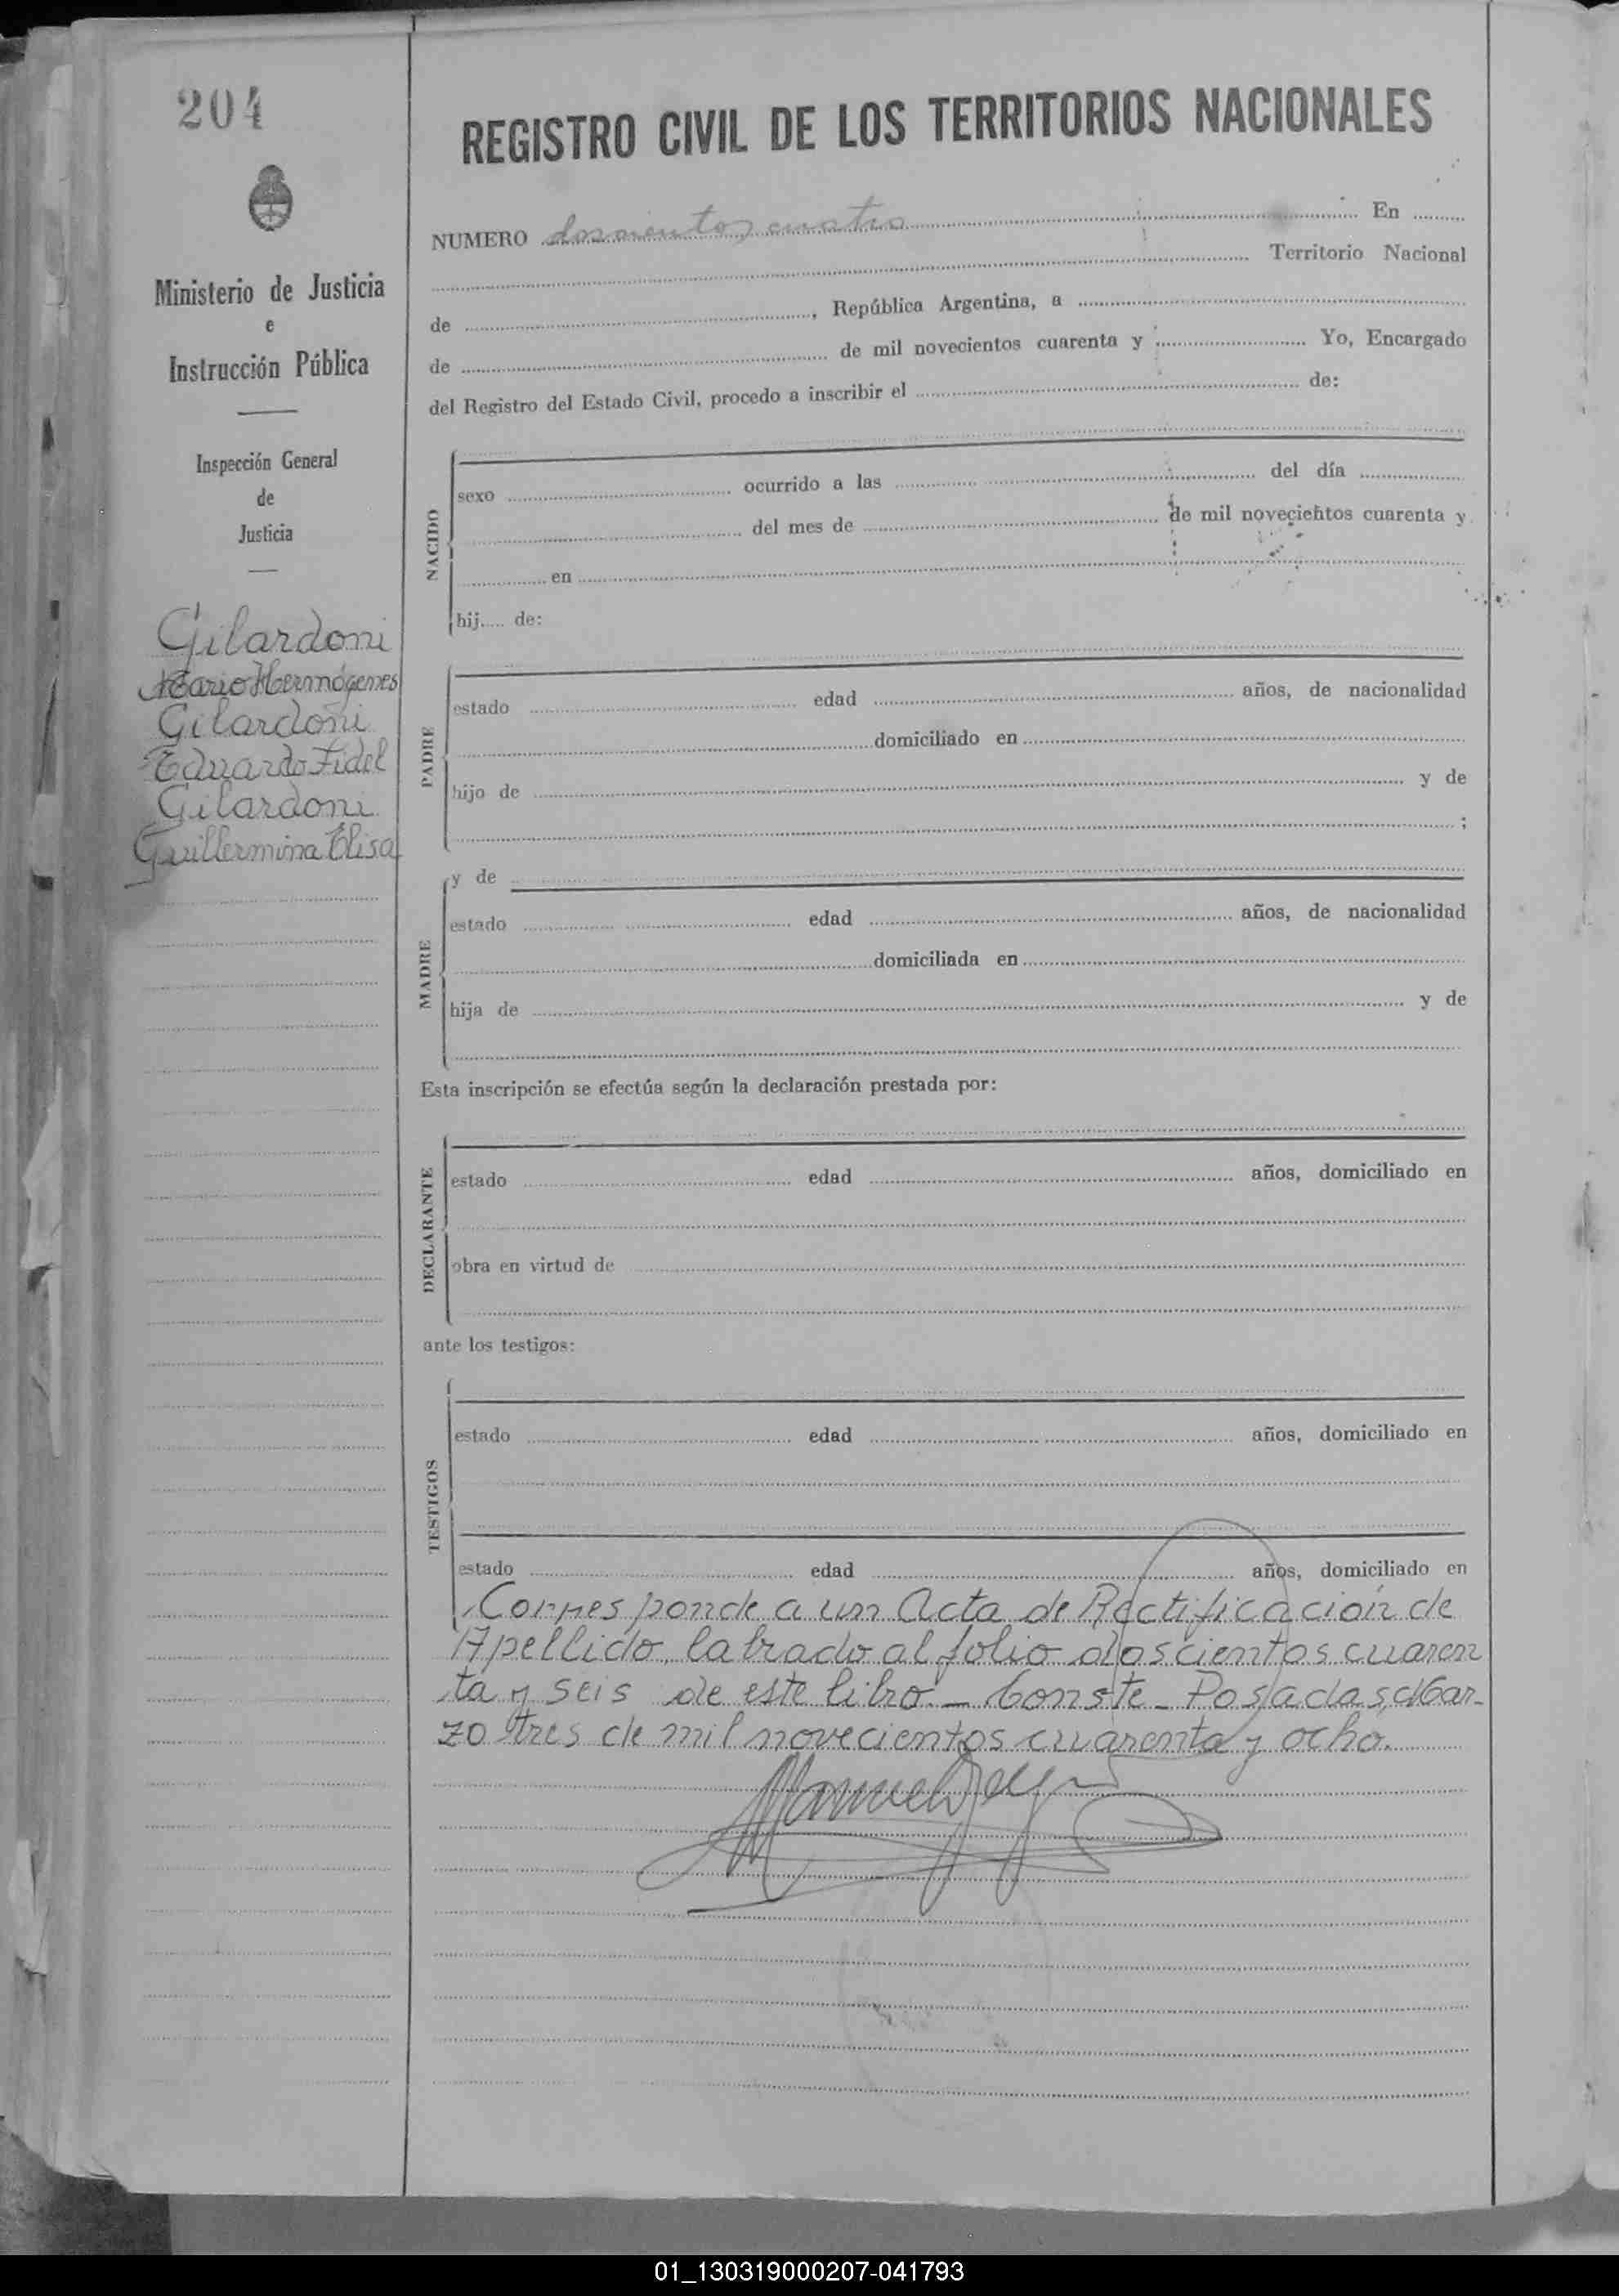 204
Ministerio de Justicia
e
Instrucción Pública
Inspección General
de
Justicia
Gilardoni
Mario Hermógenes
Gilardoni
Eduardo Fidel
Gilardoni
Guillermina Elisa
REGISTRO CIVIL DE LOS TERRITORIOS NACIONALES
NUMERO doscientos cuatro En
Territorio Nacional
de , República Argentina, a
de de mil novecientos cuarenta y Yo, Encargado
del Registro del Estado Civil, procedo a inscribir el de:
NACIDO
sexo ocurrido a las del día
del mes de de mil novecientos cuarenta y
en
hij..... de:
PADRE
estado edad años, de nacionalidad
domiciliado en
hijo de y de
;
MADRE
y de
estado edad años, de nacionalidad
domiciliada en
hija de y de
Esta inscripción se efectúa según la declaración prestada por:
DECLARANTE
estado edad años, domiciliado en
obra en virtud de
ante los testigos:
TESTIGOS
estado edad años, domiciliado en
estado edad años, domiciliado en
Corresponde a un Acta de Rectificación de
Apellido, labrado al folio doscientos cuaren
ta y seis de este libro.- Conste.- Posadas, Mar-
zo tres de mil novecientos cuarenta y ocho.
01_130319000207-041793